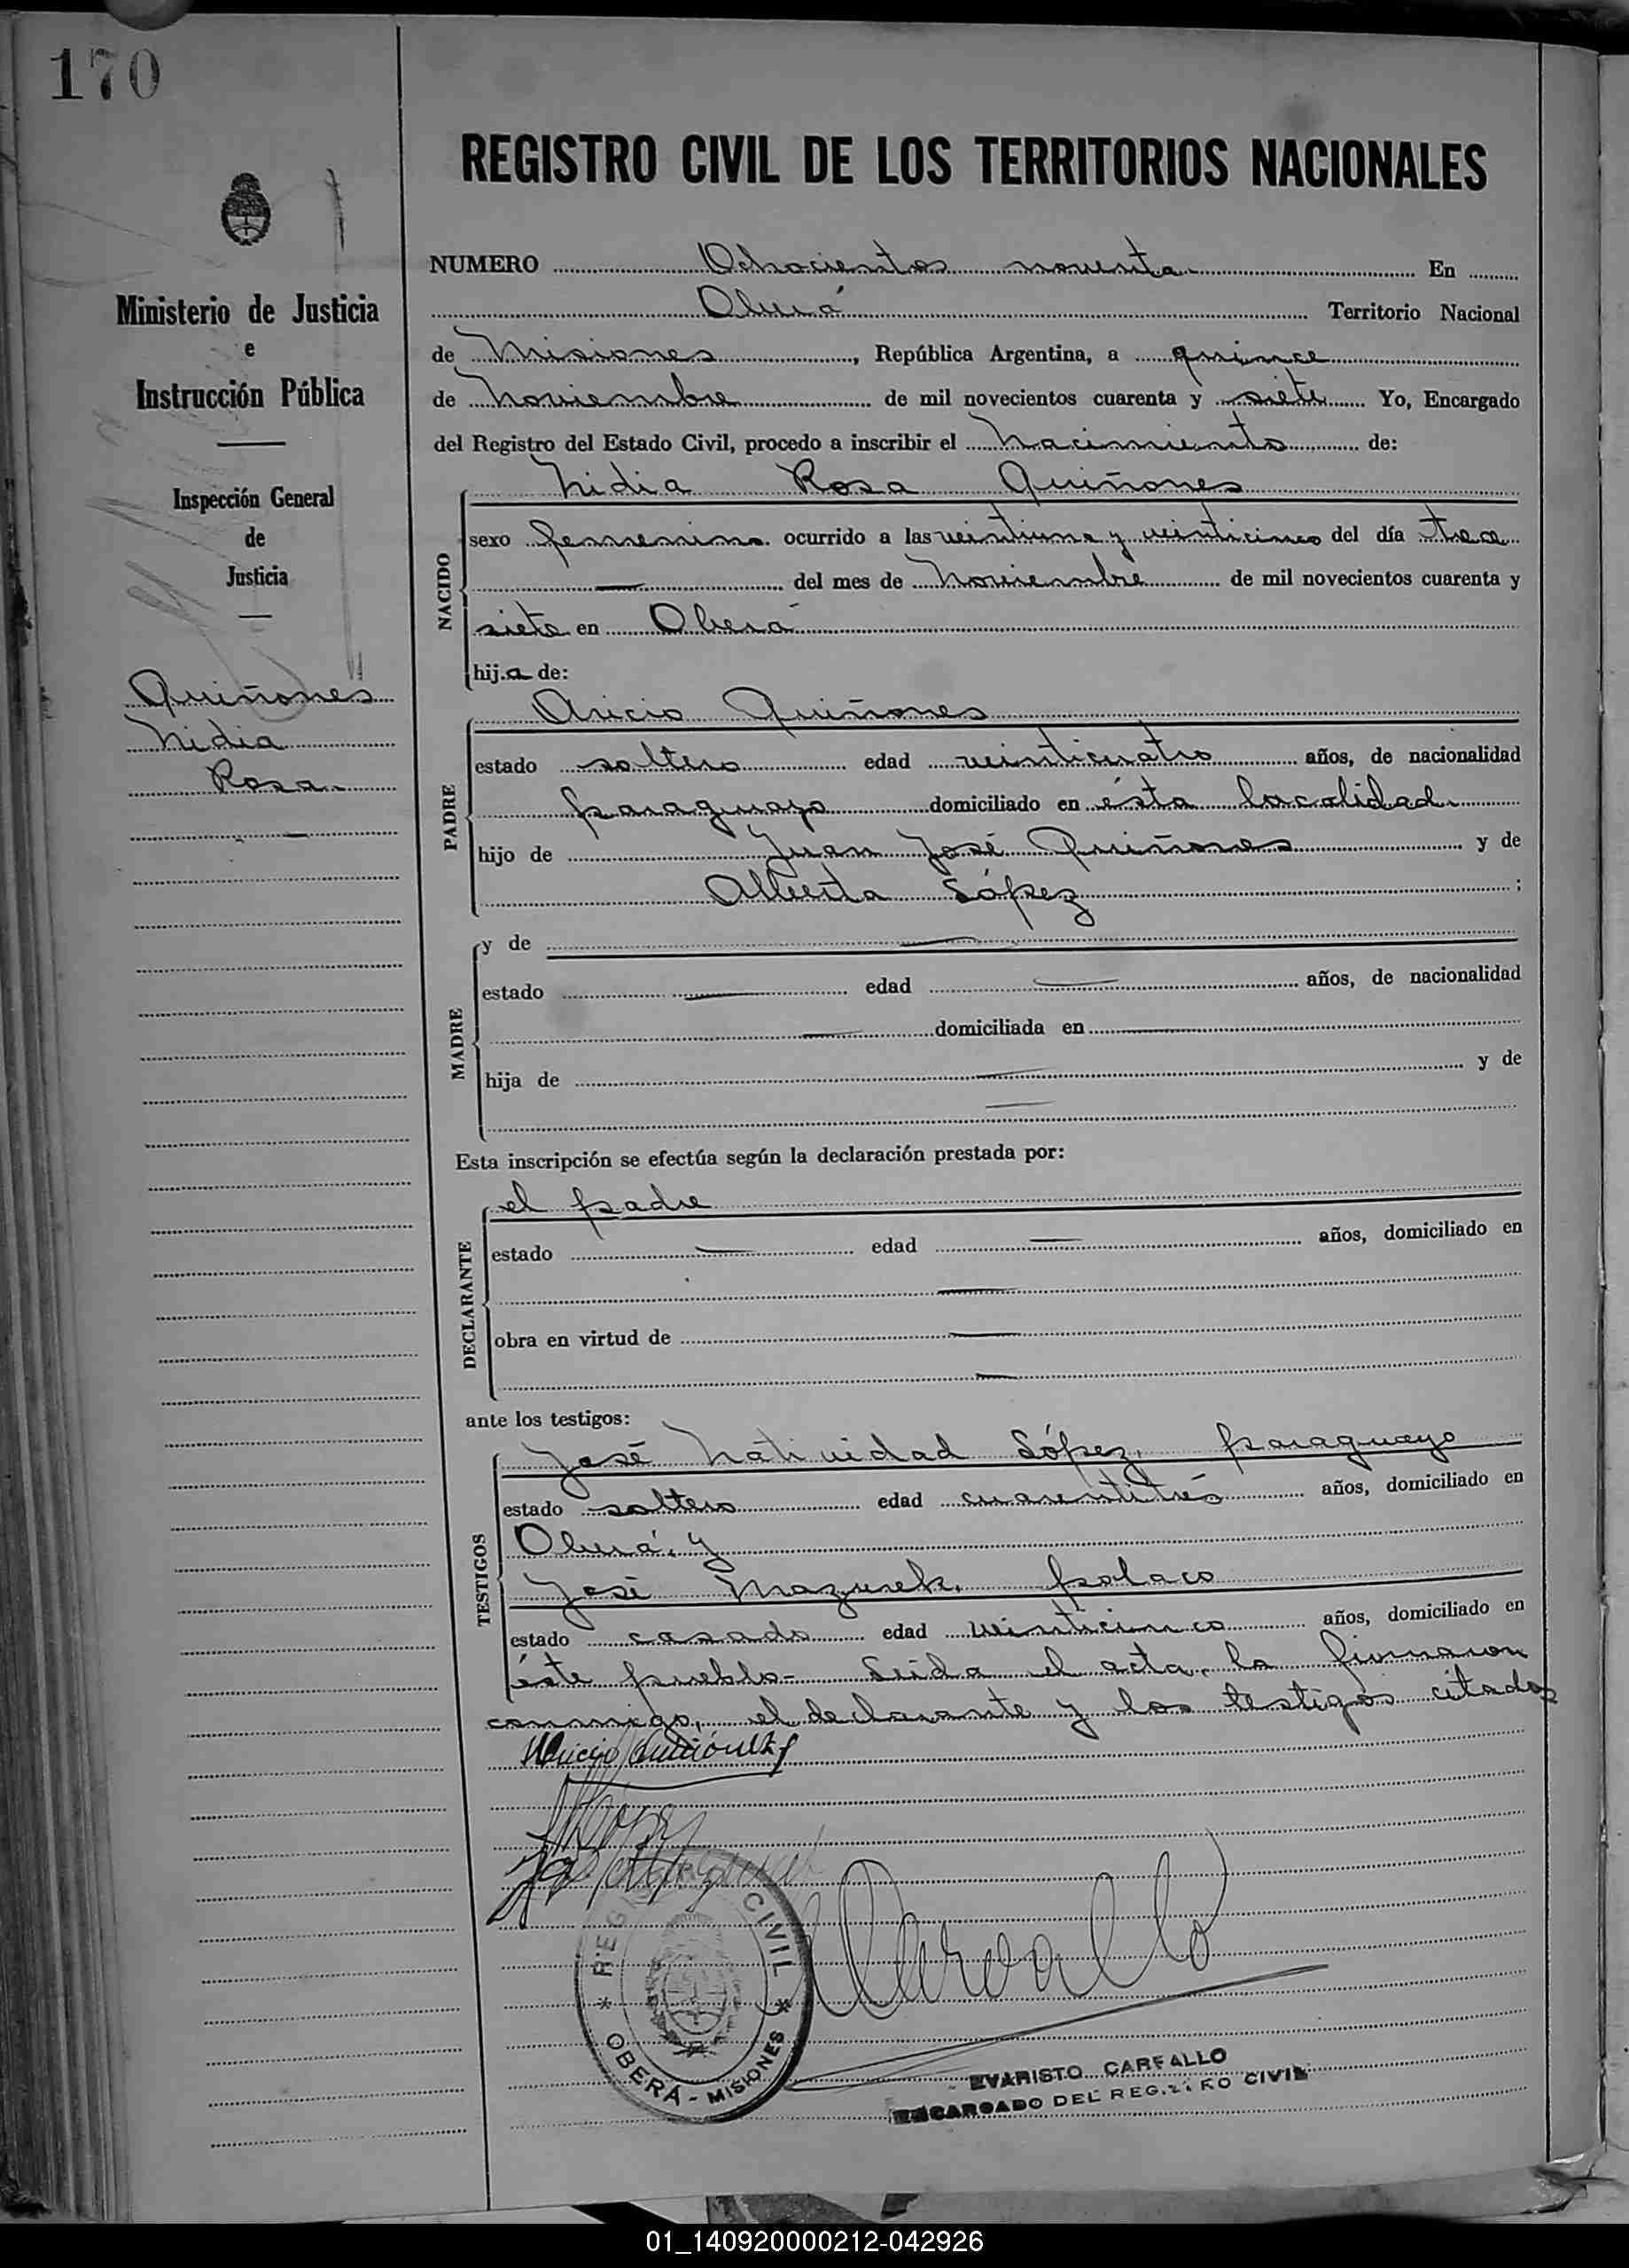 170
REGISTRO CIVIL DE LOS TERRITORIOS NACIONALES
Ministerio de Justicia
e
Instrucción Pública
Inspección General
de
Justicia
Quiñones
Nidia
Rosa
NUMERO Ochocientos noventa En
Oberá Territorio Nacional
de Misiones, República Argentina, a quince
de Noviembre de mil novecientos cuarenta y siete Yo, Encargado
del Registro del Estado Civil, procedo a inscribir el Nacimiento de:
Nidia Rosa Quiñones
NACIDO
sexo femenino ocurrido a las veintiuna y veinticinco del día trece
del mes de Noviembre de mil novecientos cuarenta y
siete en Oberá
hija de:
Aricio Quiñones
PADRE
estado soltero edad veinticuatro años, de nacionalidad
paraguayo domiciliado en ésta localidad
hijo de Juan José Quiñones y de
Alberta López;
MADRE
y de
estado edad años, de nacionalidad
domiciliada en
hija de y de
Esta inscripción se efectúa según la declaración prestada por:
DECLARANTE
el padre
estado edad años, domiciliado en
obra en virtud de
ante los testigos:
TESTIGOS
José Natividad López, paraguayo
estado soltero edad cuarentitrés años, domiciliado en
Oberá, y
José Mazurek, polaco
estado casado edad veinticinco años, domiciliado en
éste pueblo- Leida el acta, la firmaron
conmigo, el declarante y los testigos citados
Carvallo
REGISTRO CIVIL
* OBERÁ - MISIONES *
EVARISTO CARVALLO
ENCARGADO DEL REGISTRO CIVIL
01_140920000212-042926